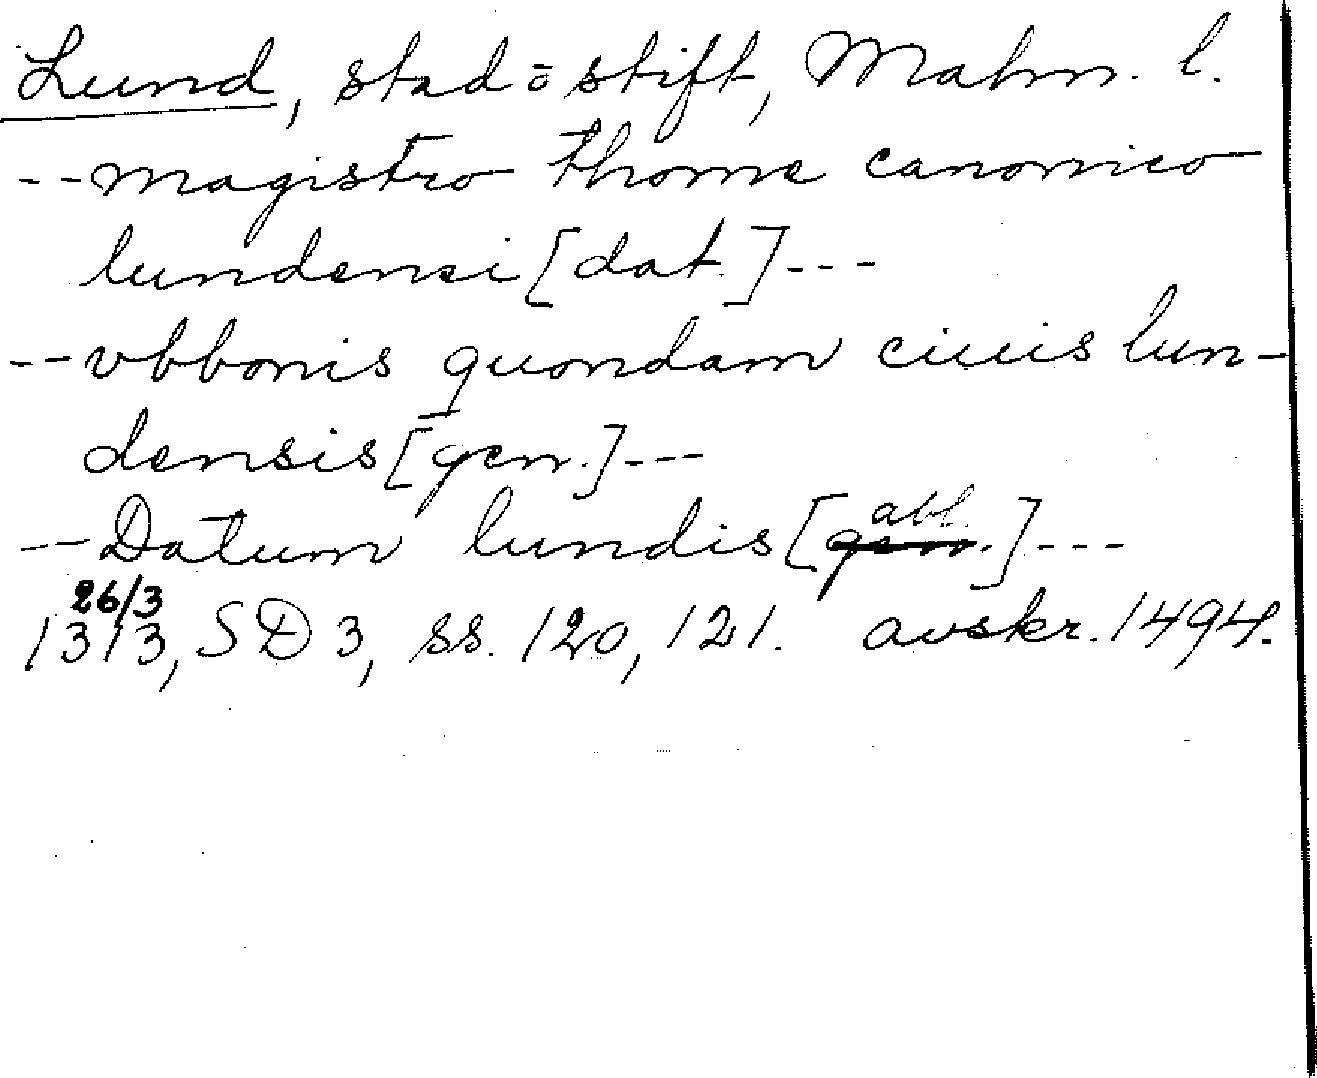 Lund, stad o stift, Malm. l.
-- magistro thome canonico
lundensi [dat.] ---
-- vbbonis quondam ciuis lun-
densis [gen.] ---
-- Datum lundis [abl.] ---
26/3
1313, SD 3, ss. 120, 121. avskr. 1494.